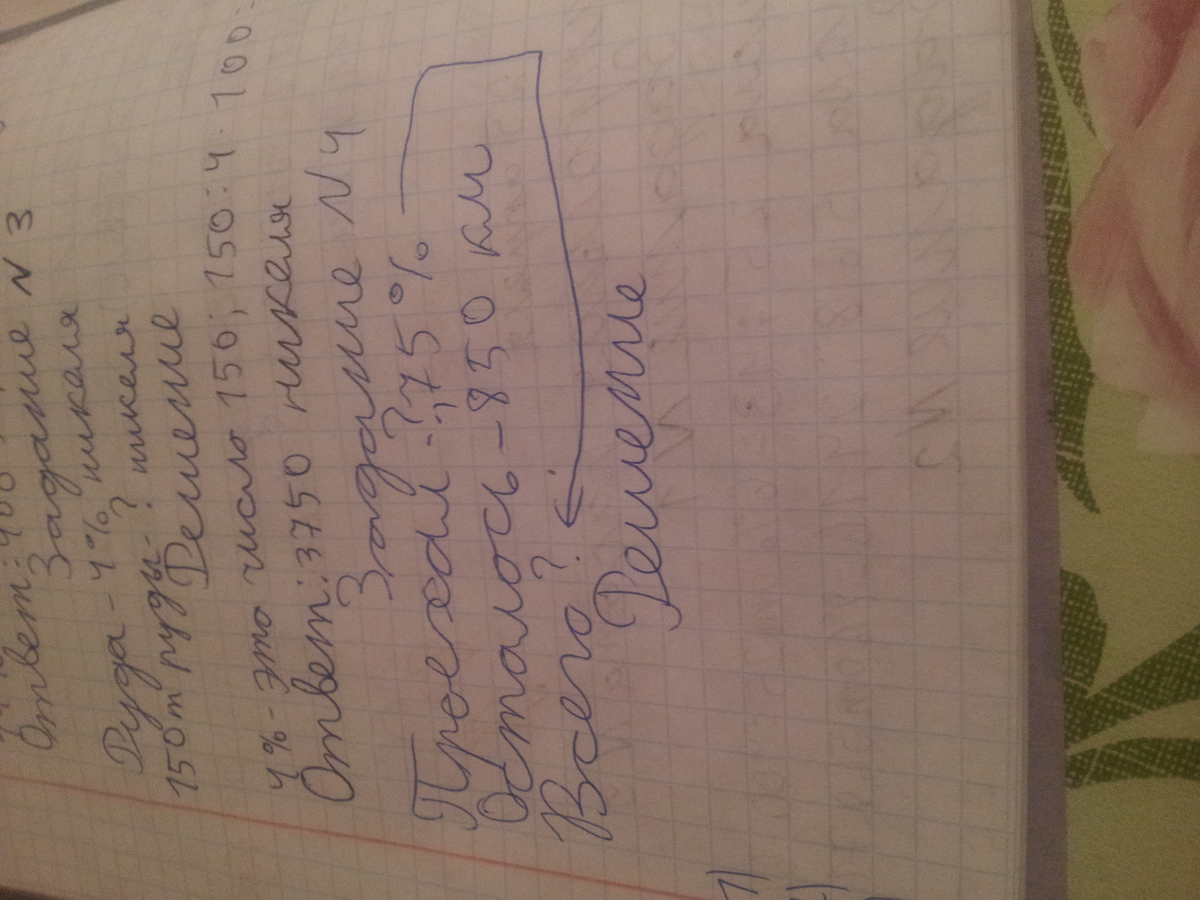 Ответ: 400
Задание N 3
Руда - 4% никеля
150т руды - ? никеля
Решение
4% - это число 150; 150:4·100=
Ответ: 3750 никеля
Задание N4
Проехал - ?, 75%
Осталось - 850 км
Всего ?
Решение
1)